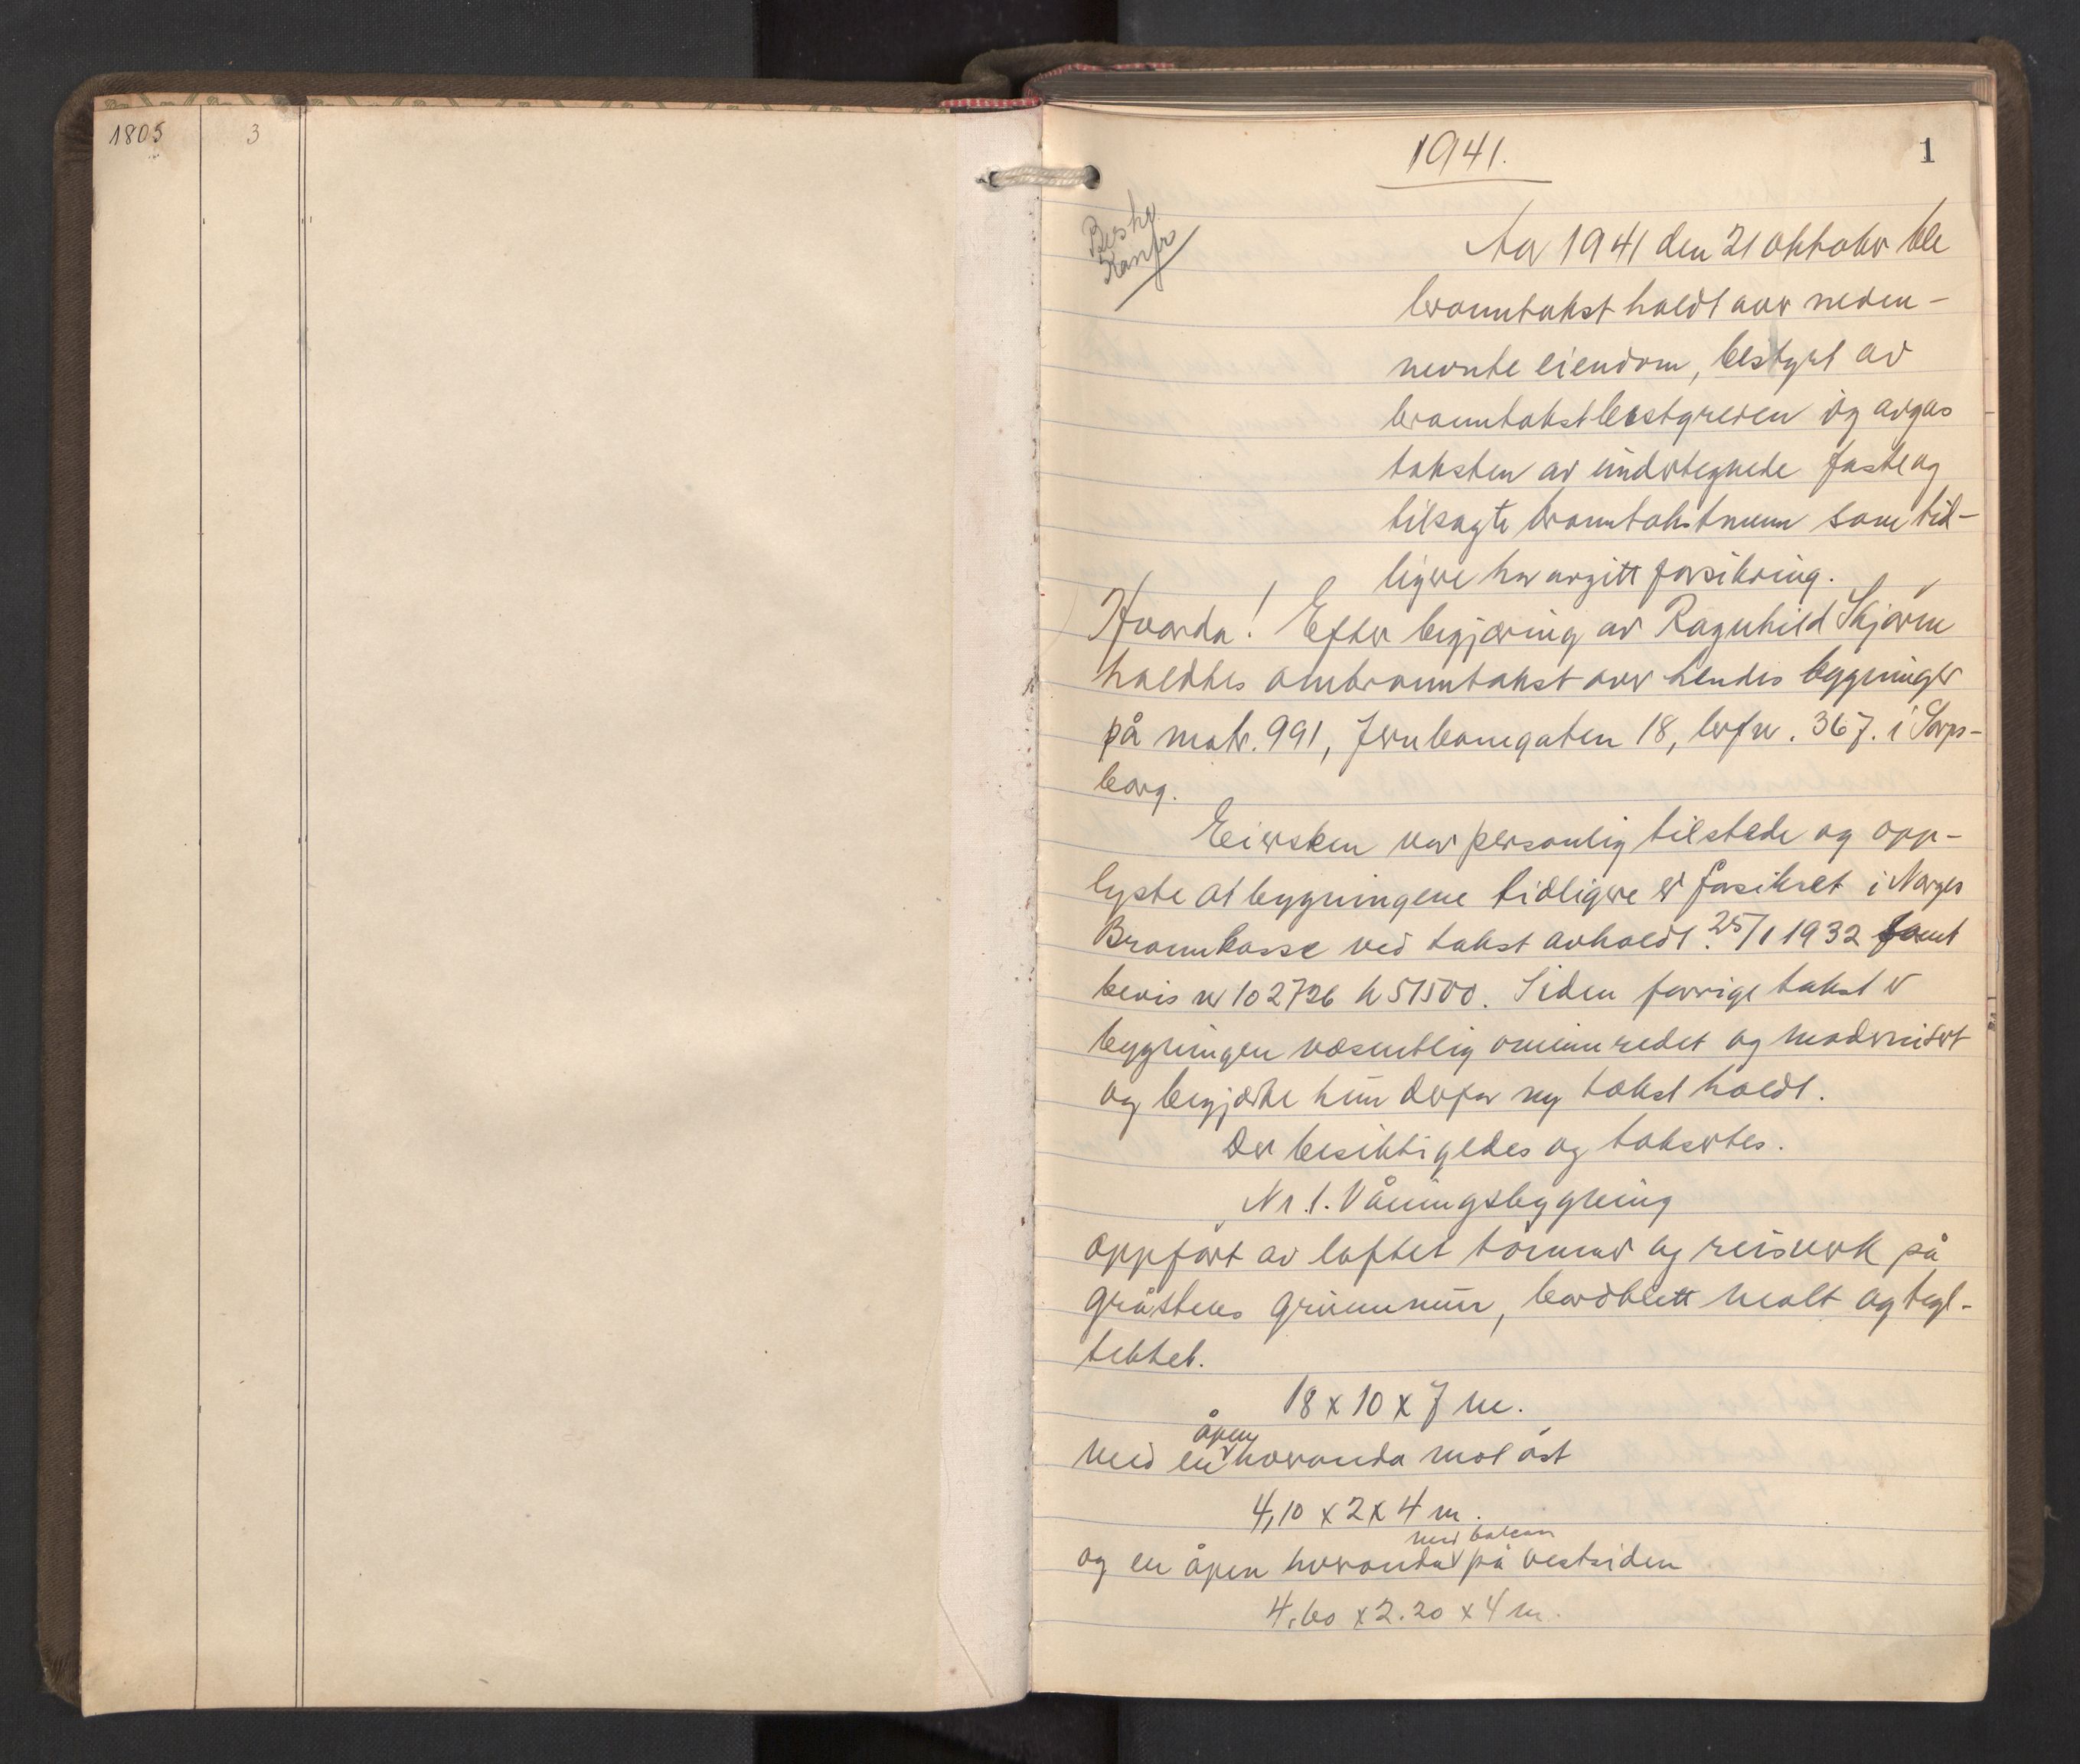 1805 3
1941.
1
Beskr.
Aar 1941 den 21 oktober ble
branntakst holdt over neden-
nevnte eiendom, bestyrt av
branntakstbestyreren og avgas
taksten av undertegnede faste og
tilsagte branntakstmenn som tid-
ligere har avgitt forsikring.
Hvorda! Efter begjæring av Ragnhild Skjøren
holdtes ombranntakst over hendes bygninger
på matr. 991, Jernbanegaten 18, brfnr. 367. i Sarps-
borg.
Eiersken var personlig tilstede og opp-
lyste at bygningene tidligere er forsikret i Norges
Brannkasse ved takst avholdt 25/1 1932
bevis nr 102726 kr 51500. Siden forrige takst er
bygningen væsentlig ominnredet og modernisert
og begjærte hun derfor ny takst holdt.
Der besiktigedes og takseretes.
Nr. 1. Våningsbygning
oppført av laftet tømmer og reisverk på
gråstens grunnmur, bordkledt malt og tegl-
tekket.
18 x 10 x 7 m.
med en åpen veranda mot øst
4,10 x 2 x 4 m.
og en åpen veranda med balcon på vestsiden
4,60 x 2.20 x 4 m.